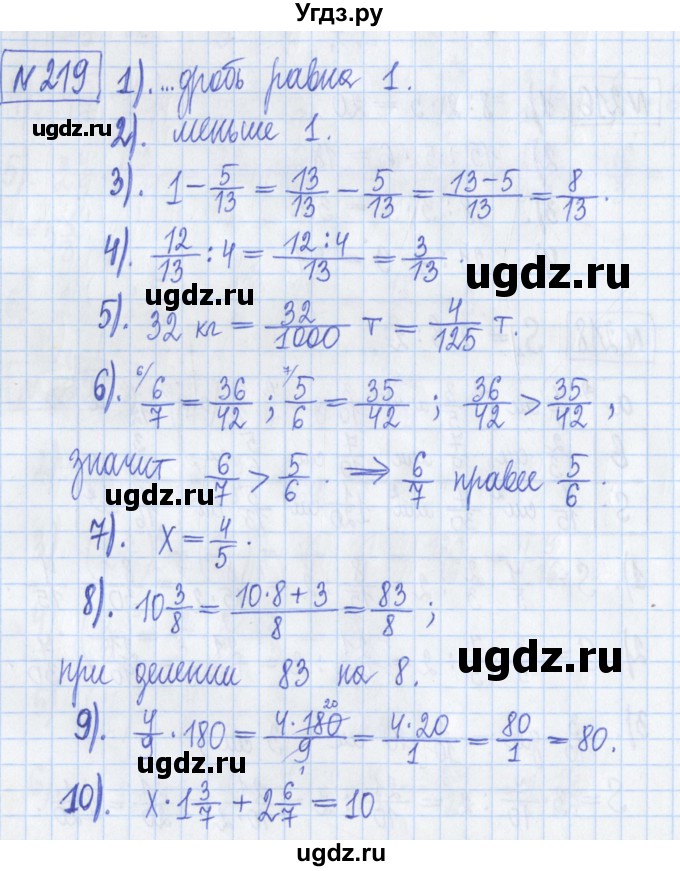 Угдз.ру
№219 1). ...дробь равна 1.
ugdz.ru
2). меньше 1.
3). 1 - 5/13 = 13/13 - 5/13 = (13-5)/13 = 8/13.
4). 12/13 : 4 = (12:4)/13 = 3/13.
ugdz.ru
ugdz.ru
5). 32 кг = 32/1000 т = 4/125 т.
6). 6/ 6/7 = 36/42 ; 7/ 5/6 = 35/42 ; 36/42 > 35/42 ,
значит 6/7 > 5/6 . ⇒ 6/7 правее 5/6 .
ugdz.ru
7). x = 4/5 .
8). 10 3/8 = (10·8+3)/8 = 83/8 ;
ugdz.ru
при делении 83 на 8.
ugdz.ru
9). 4/9 · 180 = (4·180 20)/9 1 = (4·20)/1 = 80/1 = 80.
10). x · 1 3/7 + 2 6/7 = 10
ugdz.ru
ugdz.ru